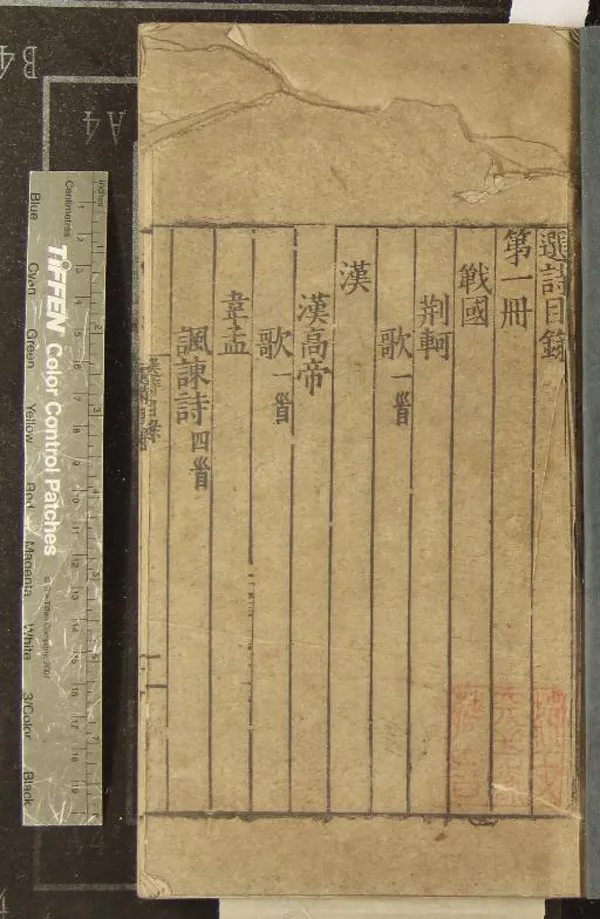 選詩目錄
第一冊
戰國
荆軻
歌一首
漢
漢高帝
歌一首
韋孟
諷諫詩四首
選詩目錄
一
B4
A4
inches
Centimetres
TIFFEN Color Control Patches
© The Tiffen Company, 2007
Blue
Cyan
Green
Yellow
Red
Magenta
White
3/Color
Black